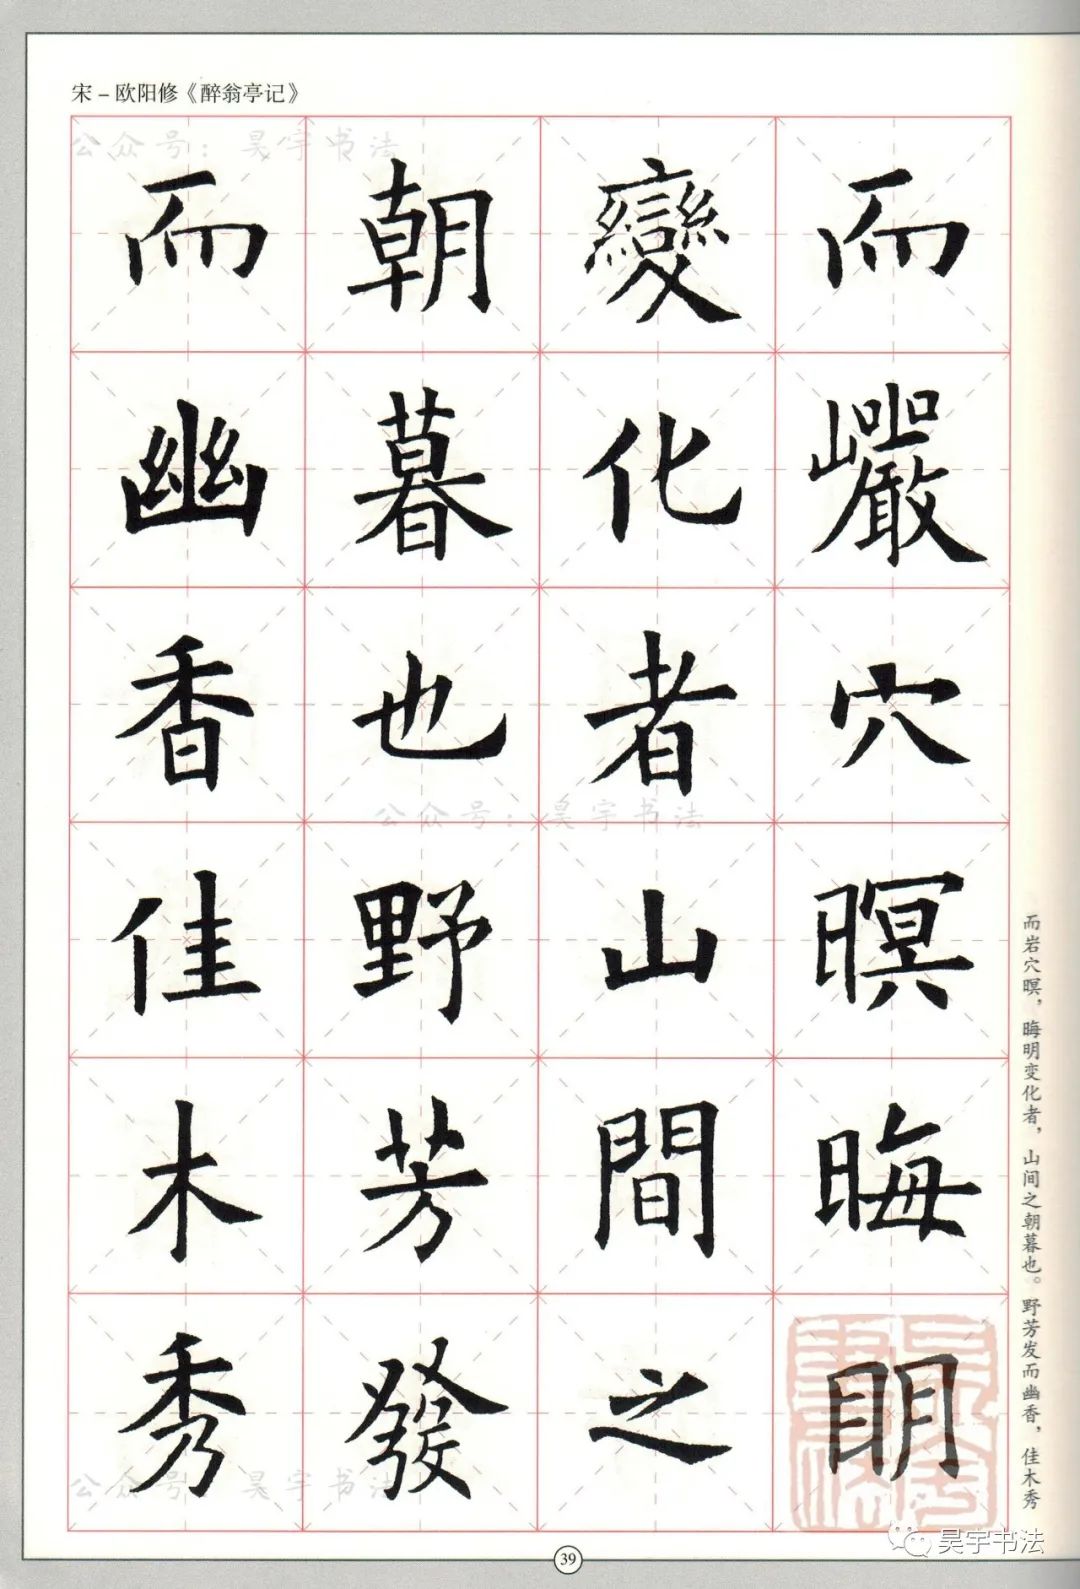 宋－欧阳修《醉翁亭记》
公众号：昊宇书法
而巗穴暝晦明
變化者山間之
朝暮也野芳發
而幽香佳木秀
公众号：昊宇书法
公众号：昊宇书法
而岩穴暝，晦明变化者，山间之朝暮也。野芳发而幽香，佳木秀
昊宇书法
39